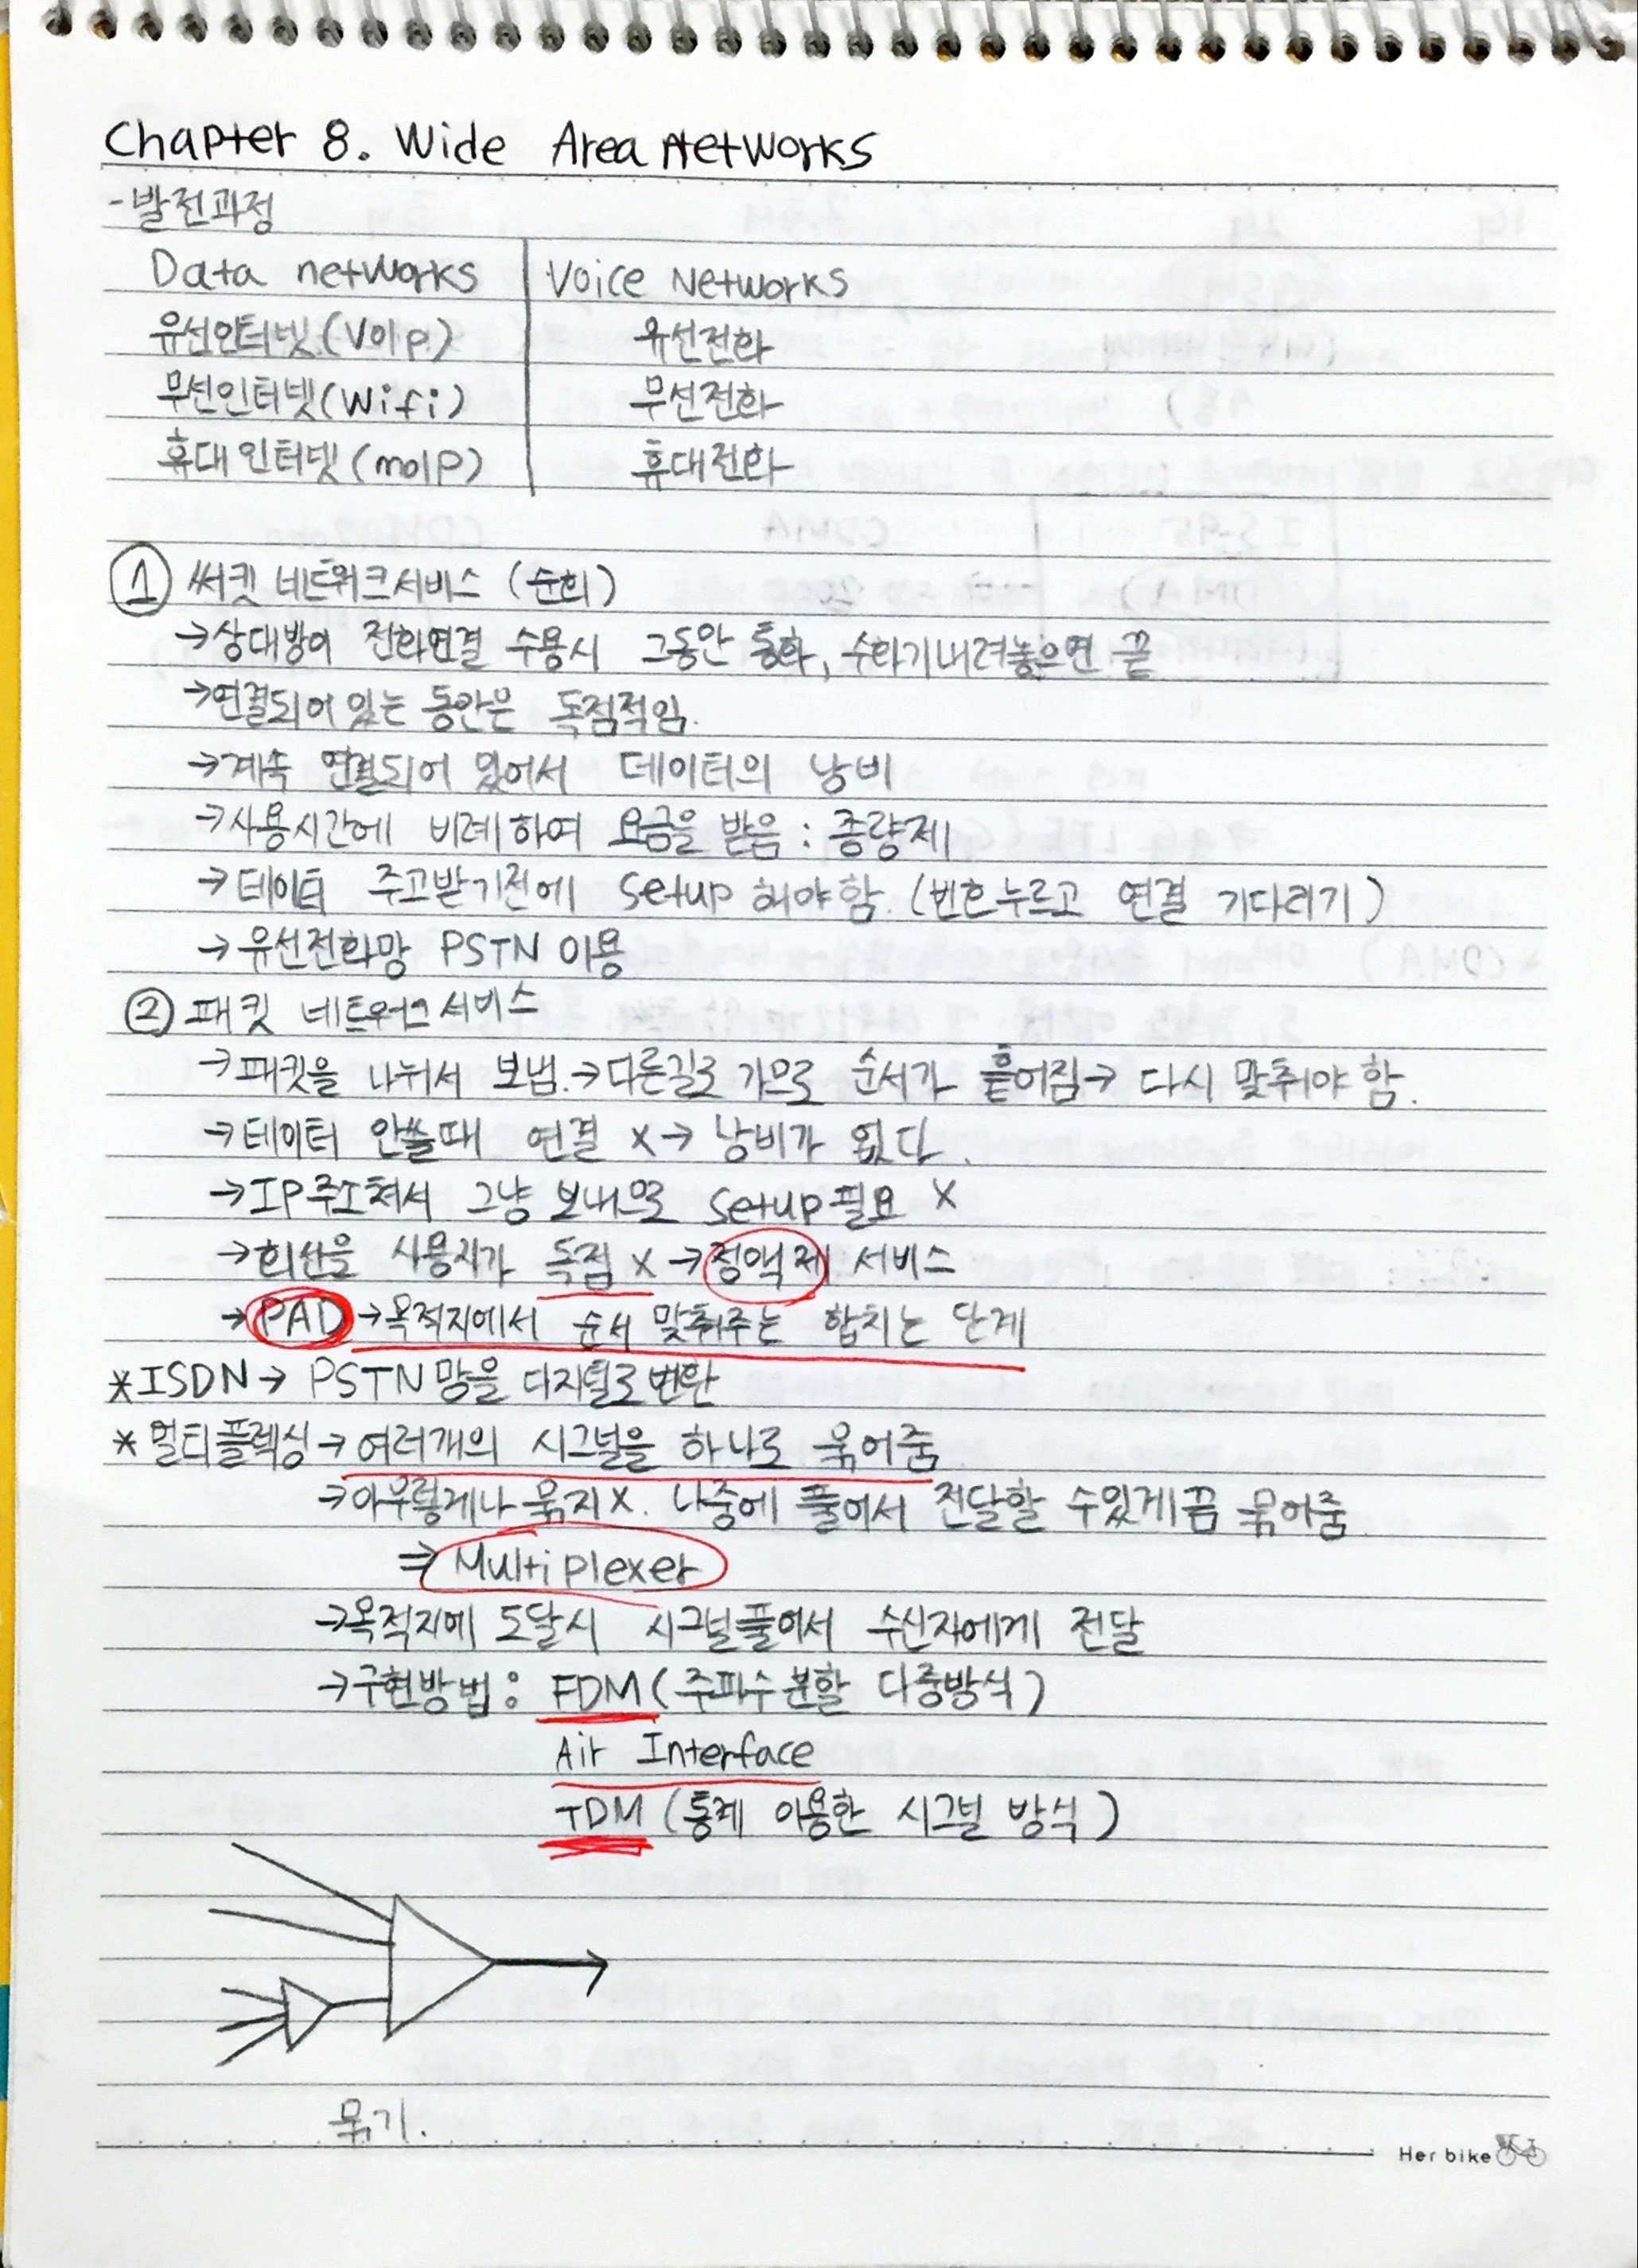 Chapter 8. Wide Area Networks
-발전과정
Data networks | Voice Networks
유선인터넷(VoIP) 유선전화
무선인터넷(Wifi) 무선전화
휴대인터넷(moIP) 휴대전화
① 써킷 네트워크서비스 (순회)
→상대방이 전화연결 수용시 그동안 통화, 수화기내려놓으면 끝
→연결되어 있는 동안은 독점적임.
→계속 연결되어 있어서 데이터의 낭비
→사용시간에 비례하여 요금을 받음 : 종량제
→데이터 주고받기전에 setup 해야함. (번호누르고 연결 기다리기)
→유선전화망 PSTN 이용
② 패킷 네트워크서비스
→패킷을 나눠서 보냄.→다른길로 가므로 순서가 흩어짐→ 다시 맞춰야 함.
→데이터 안쓸때 연결 x→ 낭비가 없다.
→IP주소쳐서 그냥 보내므로 setup필요 x
→회선을 사용자가 독점 x→정액제 서비스
→PAD→목적지에서 순서 맞춰주는 합치는 단계
*ISDN→ PSTN망을 디지털로변환
*멀티플렉싱→여러개의 시그널을 하나로 묶어줌
→아무렇게나 묶지x. 나중에 풀어서 전달할 수있게끔 묶어줌
⇒ Multiplexer
→목적지에 도달시 시그널풀어서 수신자에게 전달
→구현방법: FDM(주파수분할 다중방식)
Air Interface
TDM(통계 이용한 시그널 방식)
묶기.
Her bike